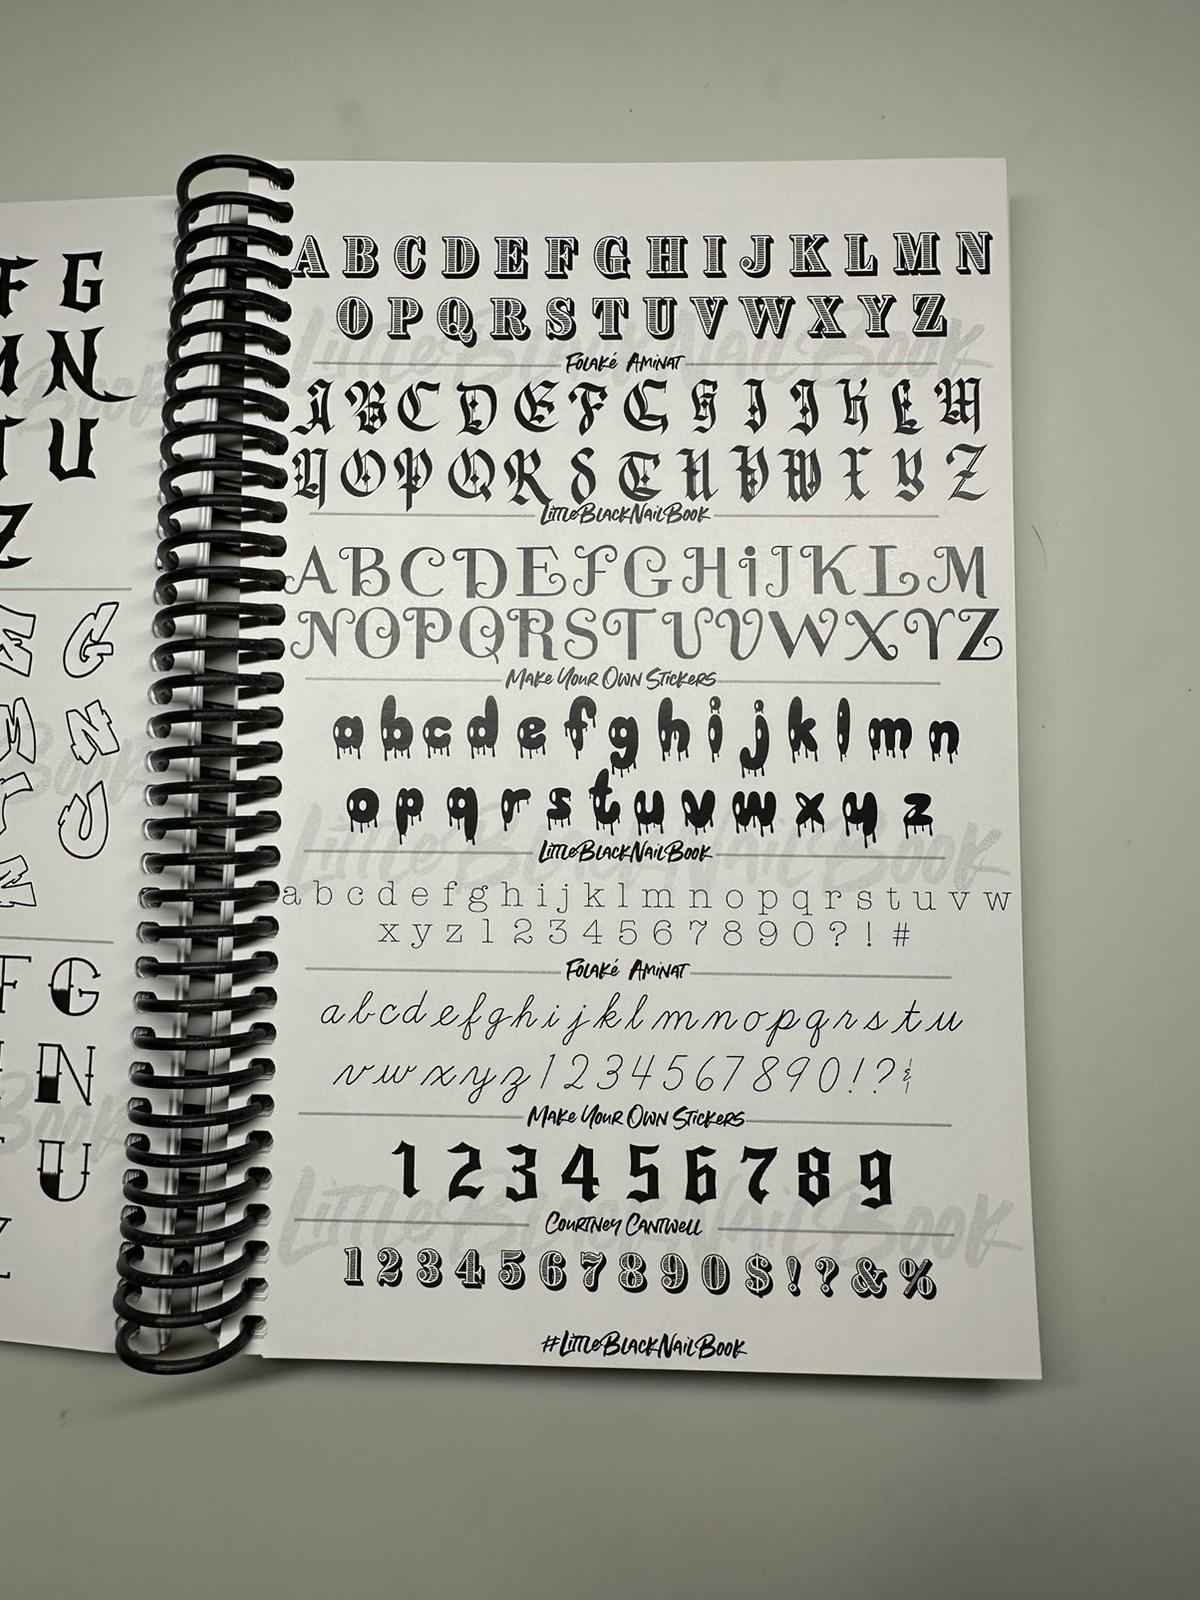 F G
M N
T U
Z
E G
M N
T U
Z
F G
N
T U
A B C D E F G H I J K L M N
O P Q R S T U V W X Y Z
FOLAKÉ AMINAT
A B C D E F G H I J K L M
N O P Q R S T U V W X Y Z
LITTLEBLACKNAILBOOK
A B C D E F G H i J K L M
N O P Q R S T U V W X Y Z
MAKE YOUR OWN STICKERS
a b c d e f g h i j k l m n
o p q r s t u v w x y z
LITTLEBLACKNAILBOOK
a b c d e f g h i j k l m n o p q r s t u v w
x y z 1 2 3 4 5 6 7 8 9 0 ? ! #
FOLAKÉ AMINAT
a b c d e f g h i j k l m n o p q r s t u
v w x y z 1 2 3 4 5 6 7 8 9 0 ! ? &
MAKE YOUR OWN STICKERS
1 2 3 4 5 6 7 8 9
COURTNEY CANTWELL
1 2 3 4 5 6 7 8 9 0 $ ! ? & %
#LITTLEBLACKNAILBOOK